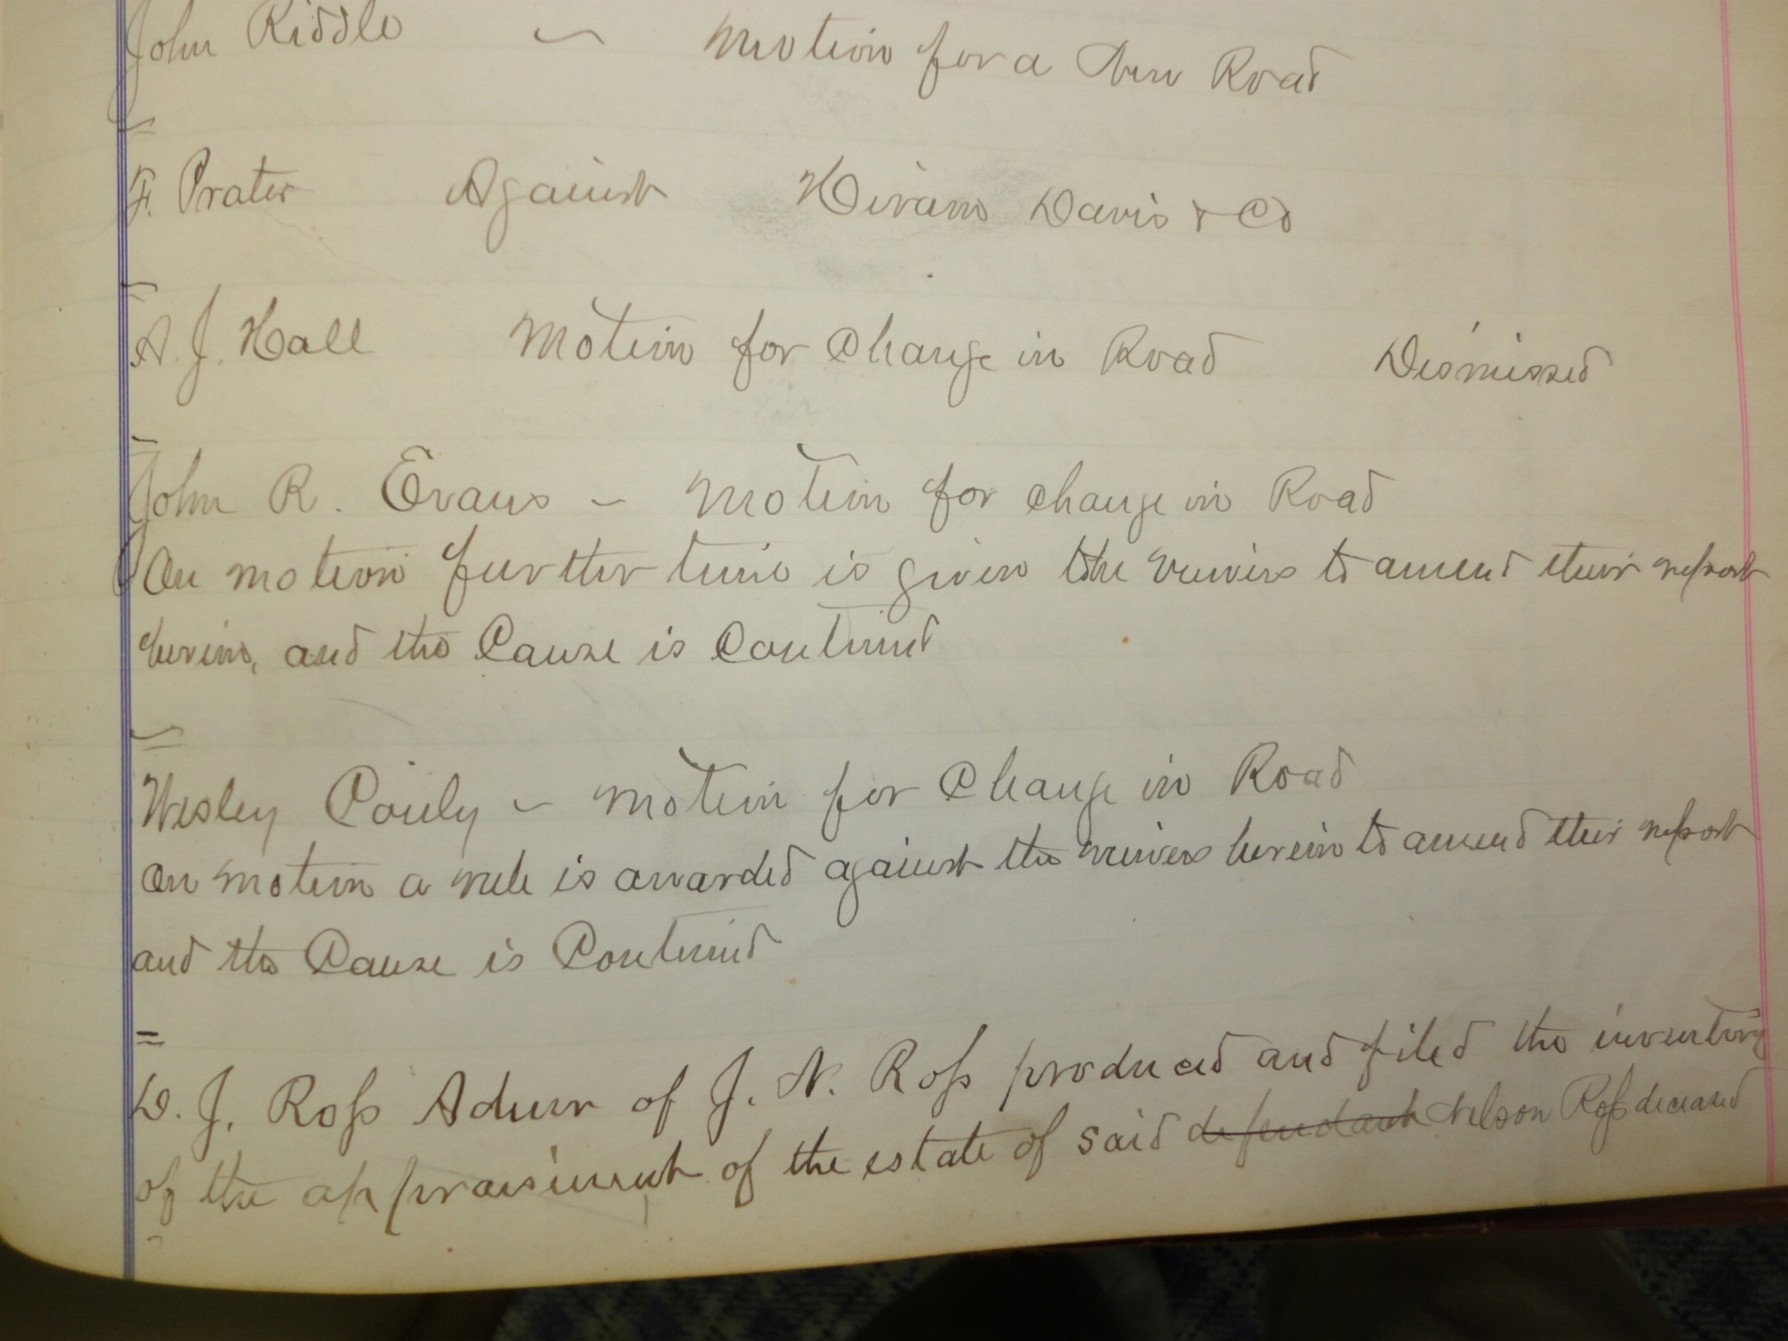 John Riddle — Motion for a New Road
F. Prater Against Hiram Davis & Co
A. J. Hall Motion for Change in Road Dismissed
John R. Evans — Motion for change in Road
On motion further time is given the viewers to amend their report
herein, and the Cause is Continued
Wesley Pauly — Motion for Change in Road
On motion a rule is awarded against the viewers herein to amend their report
and the Cause is Continued
D. J. Ross Admr of J. N. Ross produced and filed the inventory
of the appraisiment of the estate of said defendant Nelson Ross deceased